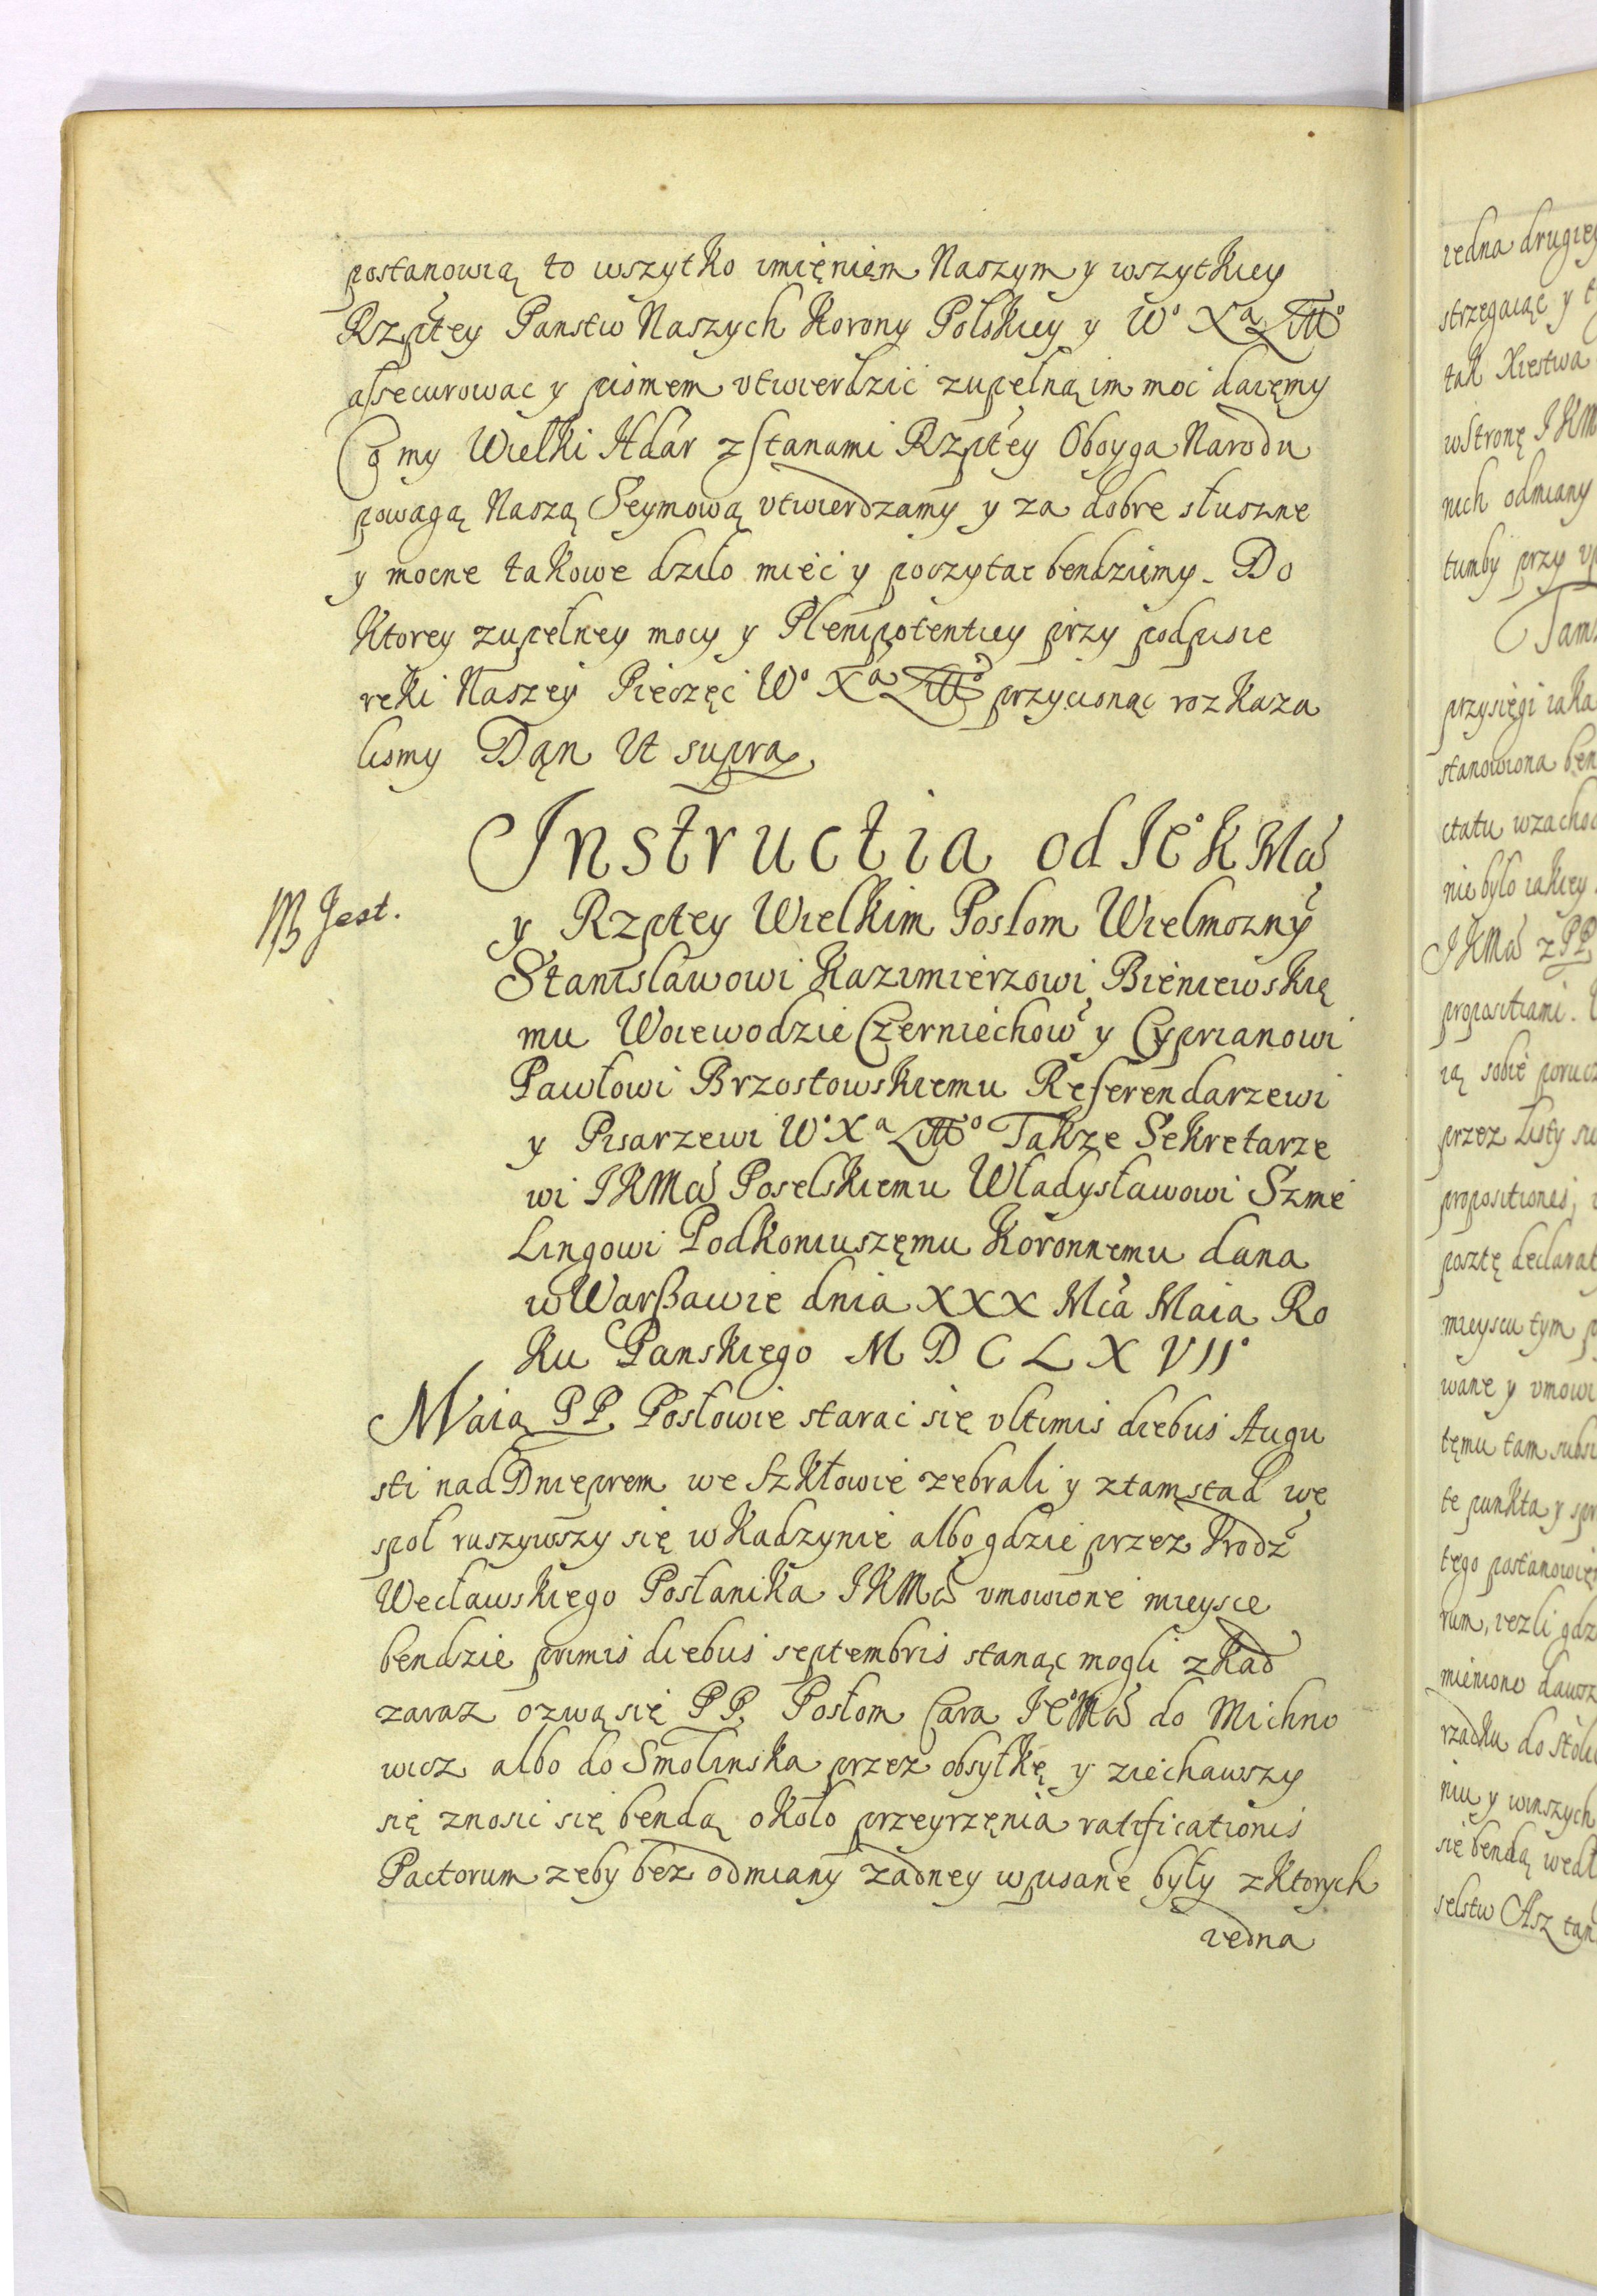 postanowią to wszytko imięniem Naszym y wszytkiey
Rzptey Panstw Naszych Korony Polskiey y W° Xa Litt°
assecurowac y pismem utwierdzic zupełną im moc daięmy
Co my Wielki Hdar z Stanami Rzptey Oboyga Narodu
powagą Naszą Seymową utwierdzamy y za dobre słuszne
y mocne takowe dziło miéc y poczytac bendziemy. Do
Ktorey zupełney mocy y Plenipotentiey przy podpisie
reki Naszey Pieczęć W° Xa Litt° przycisnąc rozkaza
lismy Dąn Ut supra
Instructia od Ie° K Mci
y Rzptey Wielkim Posłom Wielmozny
Stanisławowi Kazimierzowi Bieniewskię
mu Woiewodzie Czerniechow y Cyprianowi
Pawłowi Brzostowskiemu Referendarzewi
y Pisarzewi W° Xa Litt° Takze Sekretarze
wi IKMci Poselskiemu Władysławowi Szme
Lingowi Podkoniuszęmu Koronnemu dana
w Warßawie dnia XXX Mca Maia Ro
Ku Panskiego M D C L X VII°
NB Jest.
Maią PP. Posłowie starac się ultimis diebus Augu
sti nad Dnieprem we Szkłowie zebrali y ztamstad we
społ ruszywszy się w Kadzynie albo gdzie przez Krodz
Wecławskiego Posłanika IKMci umowione mieysce
bendzie primis diebus septembris stanąc mogli zkad
zaraz ozwą się PP. Posłom Cara Ie°Mci do Michno
wicz albo do Smolinska przez obsyłkę y ziechawszy
się znosic się bendą około przeyrzęnia ratificationis
Pactorum zeby bez odmiany zadney wpisane były z Ktorych
iedna
iedna drugiey
strzegaiąc y t
tak Xiestwa
w Stronę IKM
nich odmiany
tumby przy up
Tam
przysięgi iaka
stanowiona ben
ctatu wzacho
nie było iakiey
IKMci z PP.
propositiami.
ią sobie porucz
przez Listy su
propositiones,
posztę declarat
mieyscu tym p
wane y umowi
tęmu tam subsi
te punkta y spr
tego postanowię
rum, iezli gdz
mieniono dawsz
rzadku do stoli
niu y winszych
się bendą wedł
selstw Asz tan